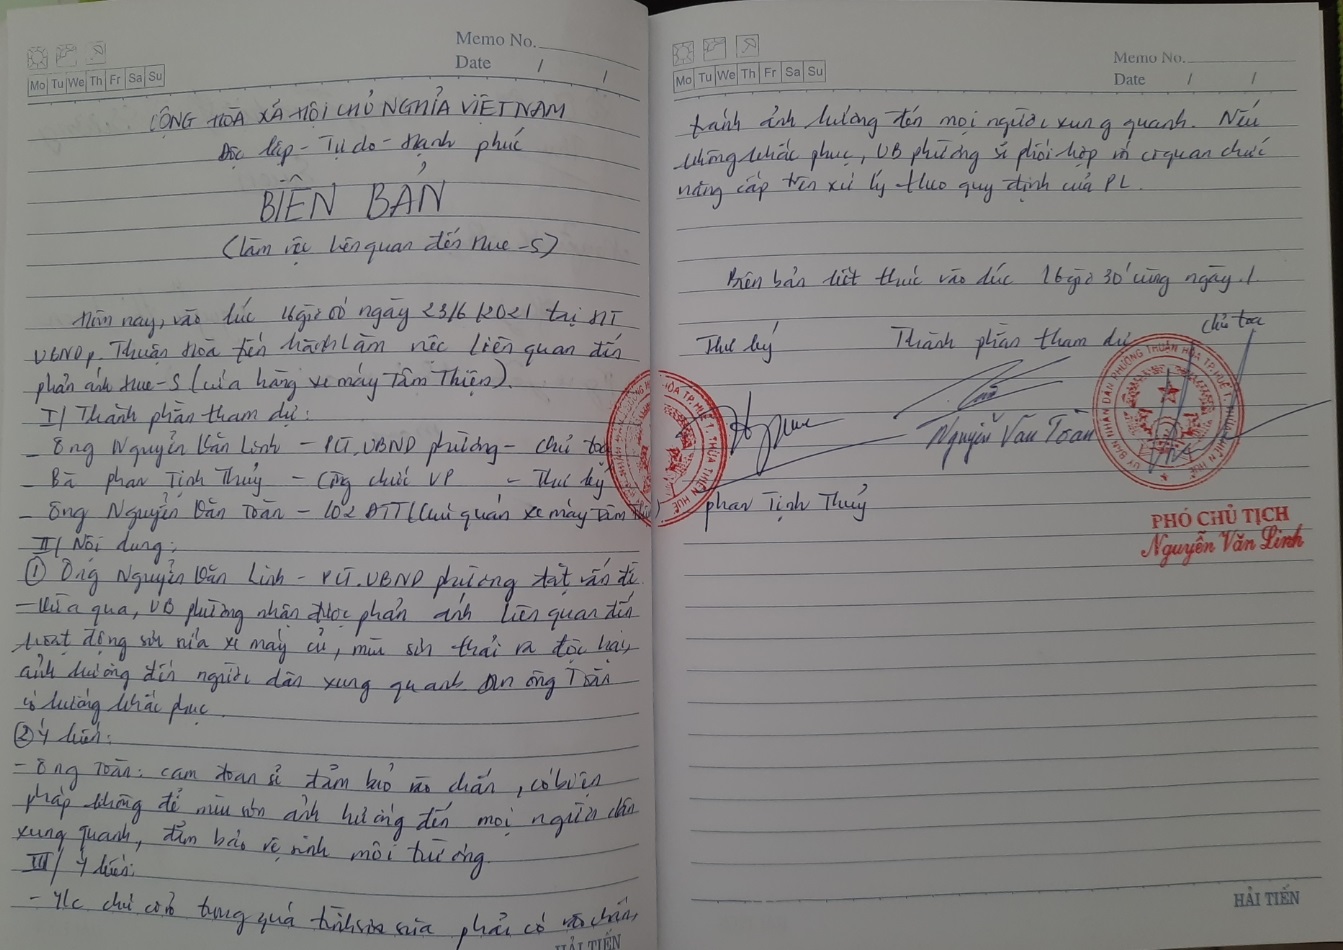 Memo No.
Date / /
Mo Tu We Th Fr Sa Su
CỘNG HÒA XÃ HỘI CHỦ NGHĨA VIỆT NAM
Độc lập - Tự do - Hạnh phúc
BIÊN BẢN
(Làm việc liên quan đến Hue-S)
Hôm nay, vào lúc 16giờ 00 ngày 23/6/2021 tại HT
UBND p. Thuận Hòa tiến hành làm việc liên quan đến
phản ánh Hue-S (cửa hàng xe máy Tâm Thiện).
I/ Thành phần tham dự:
- Ông Nguyễn Văn Linh - PCT.UBND phường - chủ tọa
- Bà Phan Tịnh Thủy - Công chức VP - Thư ký
- Ông Nguyễn Văn Toàn - 102 ĐTT (Chủ quán xe máy Tâm
II/ Nội dung:
① Ông Nguyễn Văn Linh - PCT.UBND phường đặt vấn đề
- Vừa qua, UB phường nhận được phản ánh liên quan đến
hoạt động sửa xe máy cũ, mùi sơn thải ra độc hại,
ảnh hưởng đến người dân xung quanh. ông Toàn
có hướng khắc phục.
② Ý kiến:
- Ông Toàn: cam đoan sẽ đảm bảo rào chắn, có biện
pháp không để mùi sơn ảnh hưởng đến mọi người dân
xung quanh, đảm bảo vệ sinh môi trường.
III/ Ý kiến:
- Y/c chủ cơ sở trong quá trình sửa phải có rào chắn,
HẢI TIẾN
Memo No.
Date / /
Mo Tu We Th Fr Sa Su
tránh ảnh hưởng đến mọi người xung quanh. Nếu
không khắc phục, UB phường sẽ phối hợp với cơ quan chức
năng cấp trên xử lý theo quy định của PL.
Biên bản kết thúc vào lúc 16giờ 30' cùng ngày./.
Thư ký Thành phần tham dự Chủ tọa
Nguyễn Văn Toàn
Phan Tịnh Thủy
ỦY BAN NHÂN DÂN PHƯỜNG THUẬN HÒA TP. HUẾ T. THỪA THIÊN HUẾ
PHÓ CHỦ TỊCH
Nguyễn Văn Linh
HẢI TIẾN